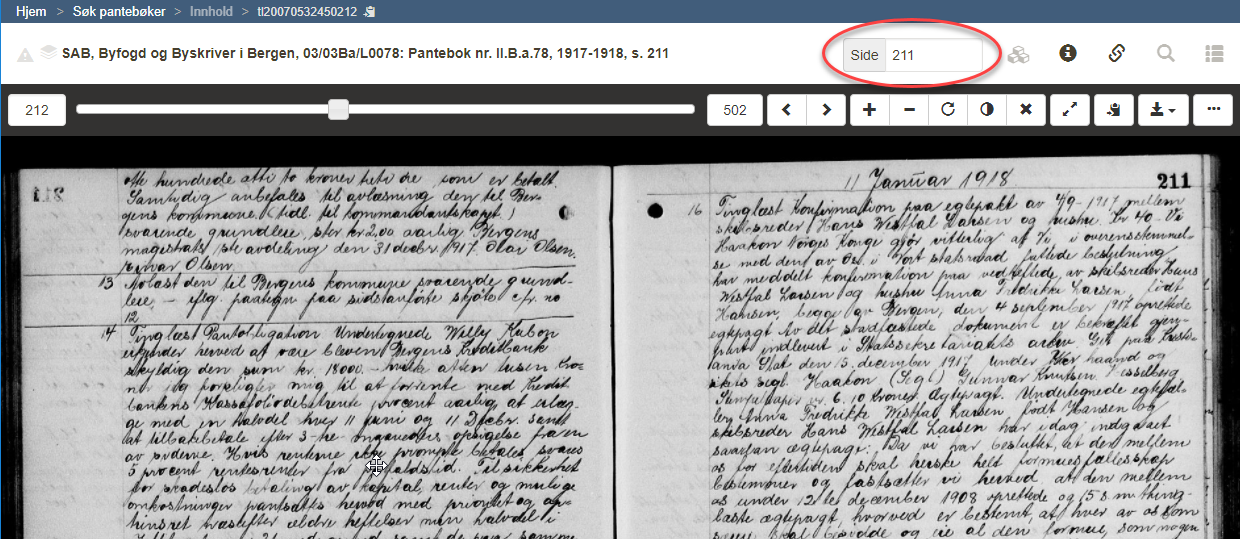 Hjem > Søk pantebøker > Innhold > tl20070532450212
SAB, Byfogd og Byskriver i Bergen, 03/03Ba/L0078: Pantebok nr. II.B.a.78, 1917-1918, s. 211
Side 211
212
502
otte hundrede otti to kroner som er betalt.
Samtydig anbefales til avlæsning den til Ber-
gens kommune (tidl. til kommandantskapet)
svarende grundleie, stor kr 2,00 aarlig. Bergens
magistrats avdeling den 31 decbr. 1917. Olav Olsen.
Einar Olsen
13 Avlæst den til Bergens kommune svarende grund-
leie, - iflg. paategn paa sidstanførte skjøte cfr. no
12
14 Tinglæst Pantobligation Undertegnede Willy Kabon
erkjender herved at være bleven Bergens Kreditbank
skyldig den sum kr. 18000 - atten tusen kro-
ner og forpligter mig til at forrente med Kredit
bankens aarlig, at erlæg-
ge med en halvdel hver 11 juni og 11 Decbr. samt
at tilbakebetale efter 3 opsigelse fra en
av siderne. Hvis renterne promte betales, svares
5 procent rentesrenter fra Til sikkerhet
for skadesløs betaling av kapital, renter og mulige
omkostninger pantsættes herved med prioritet og op-
ældre heftelser min halvdel i
11 Januar 1918
211
16 Tinglæst Konfirmation paa egtepakt av 4/9-1917 mellem
skibsreder Hans Westfal Larsen og hustru. Vi
Haakon Norges Konge gjør vitterlig at Vi i overensstemmel-
se med den av Os i Vort statsraad fattede beslutning
har meddelt konfirmation paa vedheftede, av skibsreder Hans
Westfal Larsen og hustru Anna Fredrikke Larsen, født
Hansen, begge av Bergen, den 4 september 1917 oprettede
egtepagt Av det stadfæstede dokument er bekræftet gjen-
part indlevert i Statssekretariatets arkiv Git paa Kristi-
ania Slot den 15 december 1917 under Vor haand og
rikets segl. Haakon (Segl) Gunnar Knutsen.
6.10 kroner Ægtepagt. Undertegnede egtefæl-
ler Anna Fredrikke Westfal Larsen født Hansen og
skibsreder Hans Westfal Larsen har idag indgaaet
saadan ægtepagt. Da vi har besluttet, at den mellem
os for eftertiden skal herske helt formuesfællesskap
bestemmer og fastsætter vi herved, at den mellem
os under 12te december 1908 oprettede og 15 s. m. thing-
læste ægtepagt, hvorved er bestemt, at hver av os som
skal al den formue, som nogen